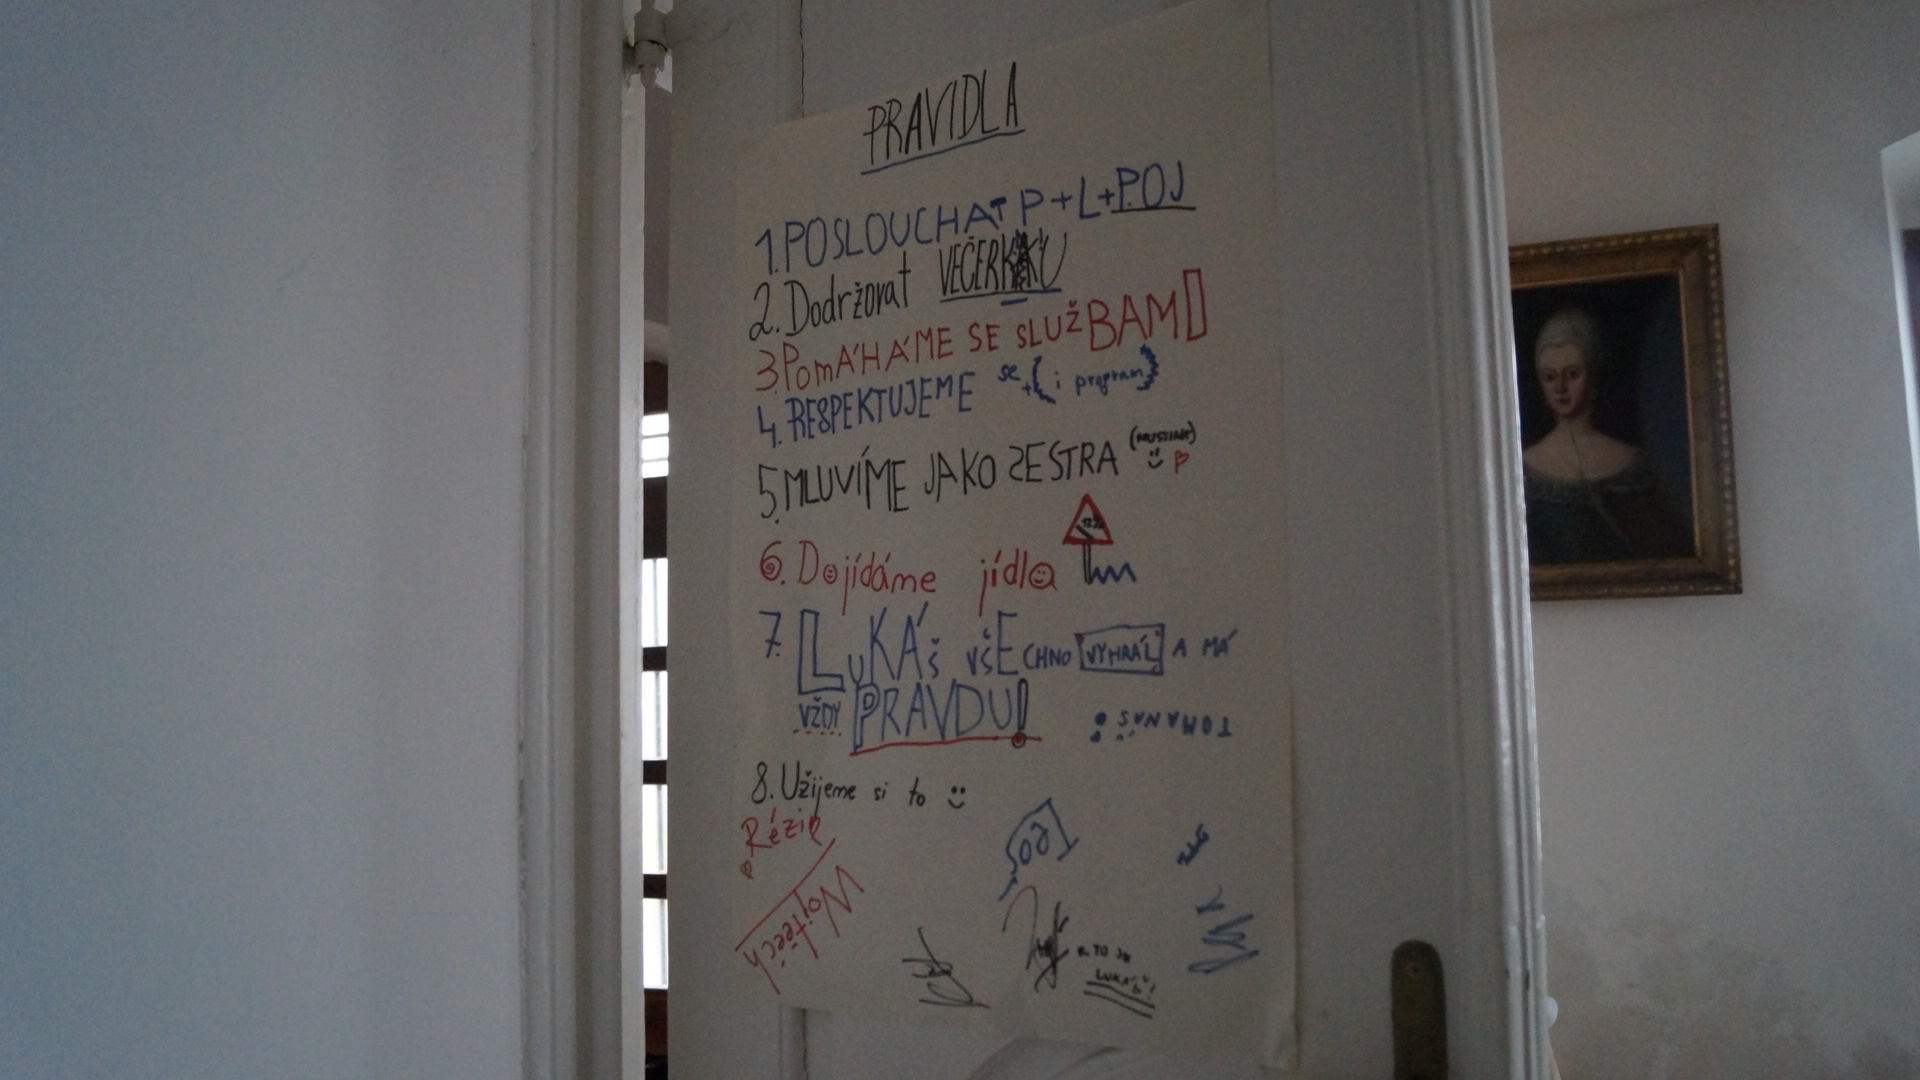 PRAVIDLA
1. POSLOUCHAT P+L+POJ
2. Dodržovat VEČERKU
3 POMÁHÁME SE SLUŽBAMI
4. RESPEKTUJEME se + (i program)
5. MLUVÍME JAKO SESTRA
6. Dojídáme jídla
12%
7. LUKÁŠ VŠECHNO VYHRÁL A MÁ
VŽDY PRAVDU!
TOMANAS
8. Užijeme si to
Rézie
Vojtěch
TO JE
LUKÁŠ!